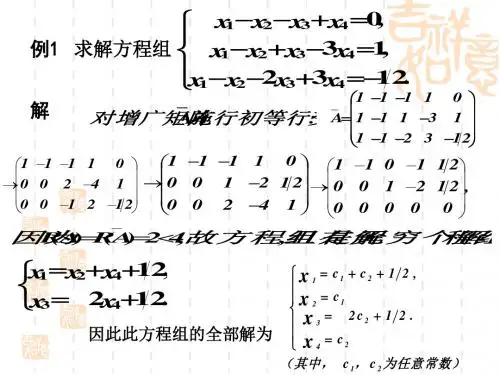 x₁−x₂−x₃+x₄=0,
例1 求解方程组 x₁−x₂+x₃−3x₄=1,
x₁−x₂−2x₃+3x₄=−1/2.
解 对增广矩阵 行初等行 Ā=
1 −1 −1 1 0
1 −1 1 −3 1
1 −1 −2 3 −1/2
1 −1 −1 1 0
0 0 2 −4 1
0 0 −1 2 −1/2
→
1 −1 −1 1 0
0 0 1 −2 1/2
0 0 2 −4 1
→
1 −1 0 −1 1/2
0 0 1 −2 1/2
0 0 0 0 0
,
因 R(Ā)=2<4,故方程组 解 穷个
x₁=x₂+x₄+1/2,
x₃= 2x₄+1/2.
因此此方程组的全部解为
x₁=c₁+c₂+1/2,
x₂=c₁
x₃= 2c₂+1/2.
x₄=c₂
(其中, c₁,c₂为任意常数)